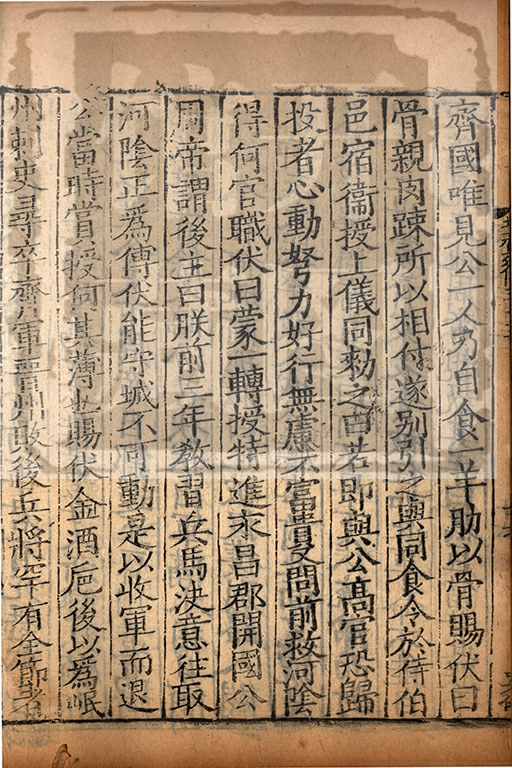 齊國唯見公一人乃自食一羊肋以骨賜伏曰
骨親肉踈所以相付遂别引之與同食令於侍伯
邑宿衞授上儀同勑之曰若即與公高官恐歸
投者心動努力好行無慮不富貴又問前救河陰
得何官職伏曰蒙一轉授特進永昌郡開國公
周帝謂後主曰朕前三年敎習兵馬決意往取
河陰正爲傅伏能守城不可動是以收軍而退
公當時賞授何其薄也賜伏金酒巵後以爲岷
州刺史尋卒齊軍晉州敗後兵將罕有全節者